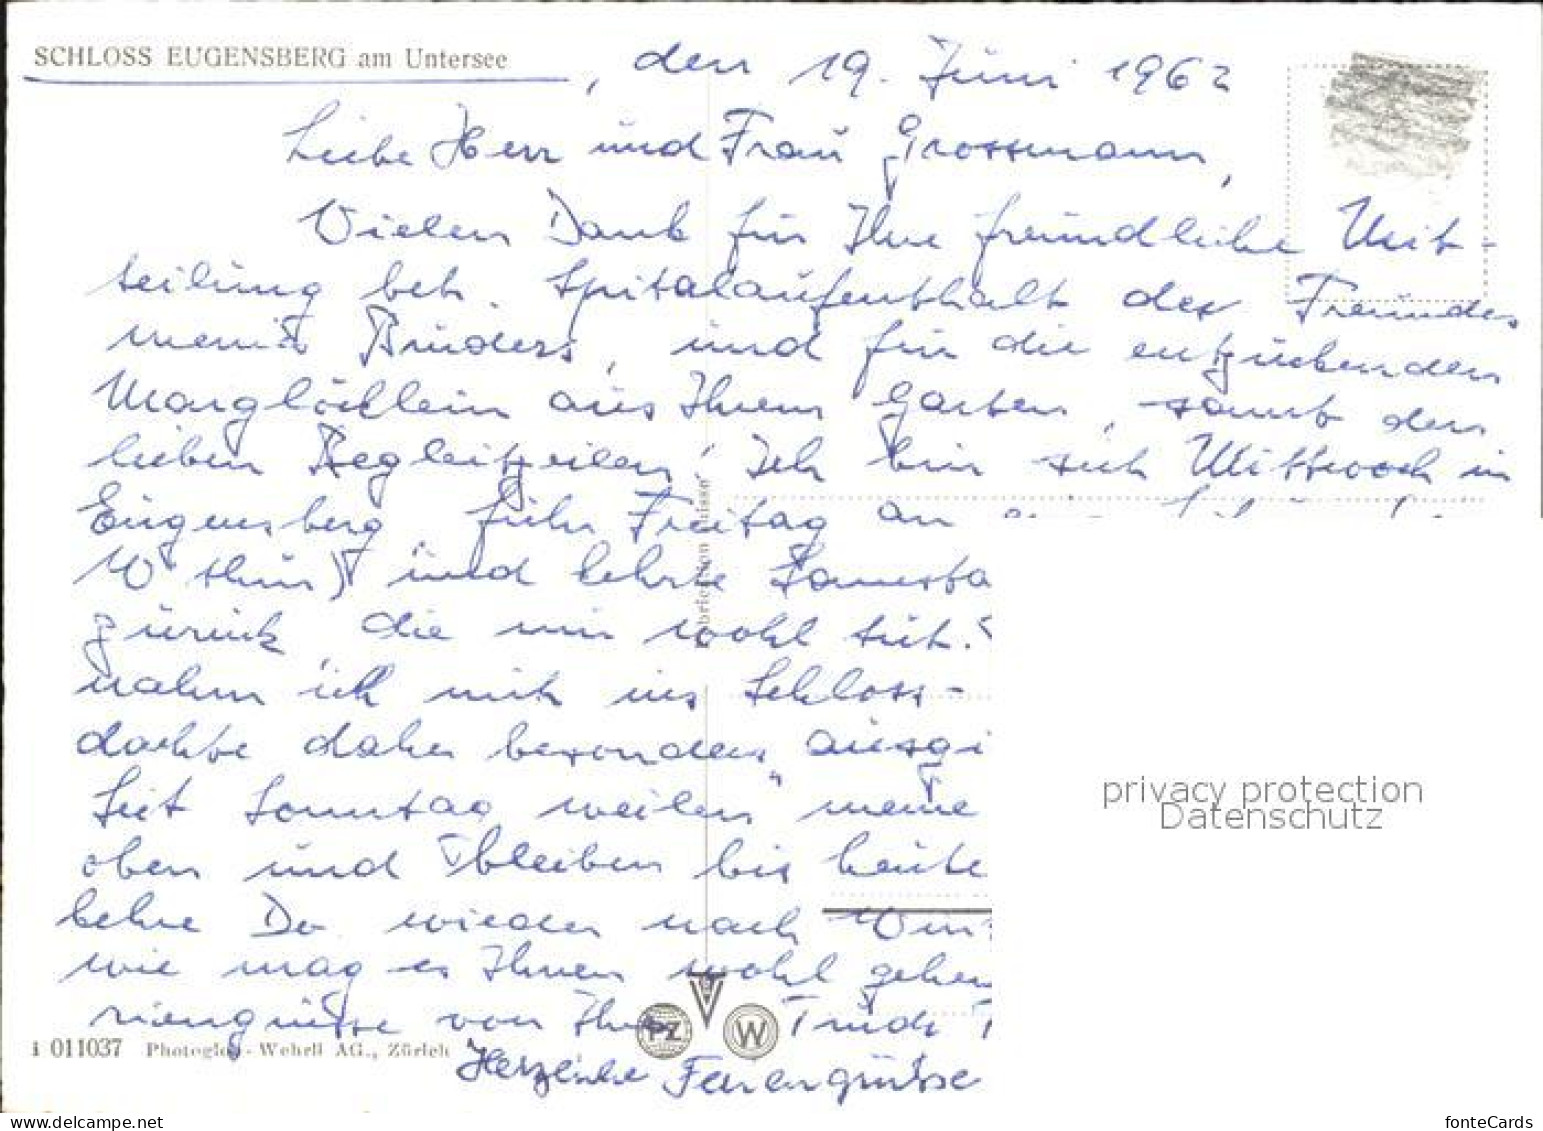 SCHLOSS EUGENSBERG am Untersee
, den 19. Juni 1962
Liebe Herr und Frau Grossmann,
Vielen Dank für Ihre freundliche Mit-
teilung betr. Spitalaufenthalt des Freundes
meines Bruders, und für die entzückenden
Maiglöcklein aus Ihrem Garten, samt den
lieben Begleitzeilen! Ich bin seit Mittwoch in
Eugensberg, fuhr Freitag an
W'thur) und kehrte Samsta
zurück, die mir wohl tut.
nahm ich mit ins Schloss-
dachte daher besonders ausgi
Seit Sonntag weilen meine
oben und bleiben bis heute
kehre Do wieder nach Win
wie mag es Ihnen wohl gehen
von Trudi
Herzliche Feriengrüsse
i 011037 Photoglob-Wehrli AG., Zürich
PZ
W
privacy protection
Datenschutz
www.delcampe.net
fonteCards